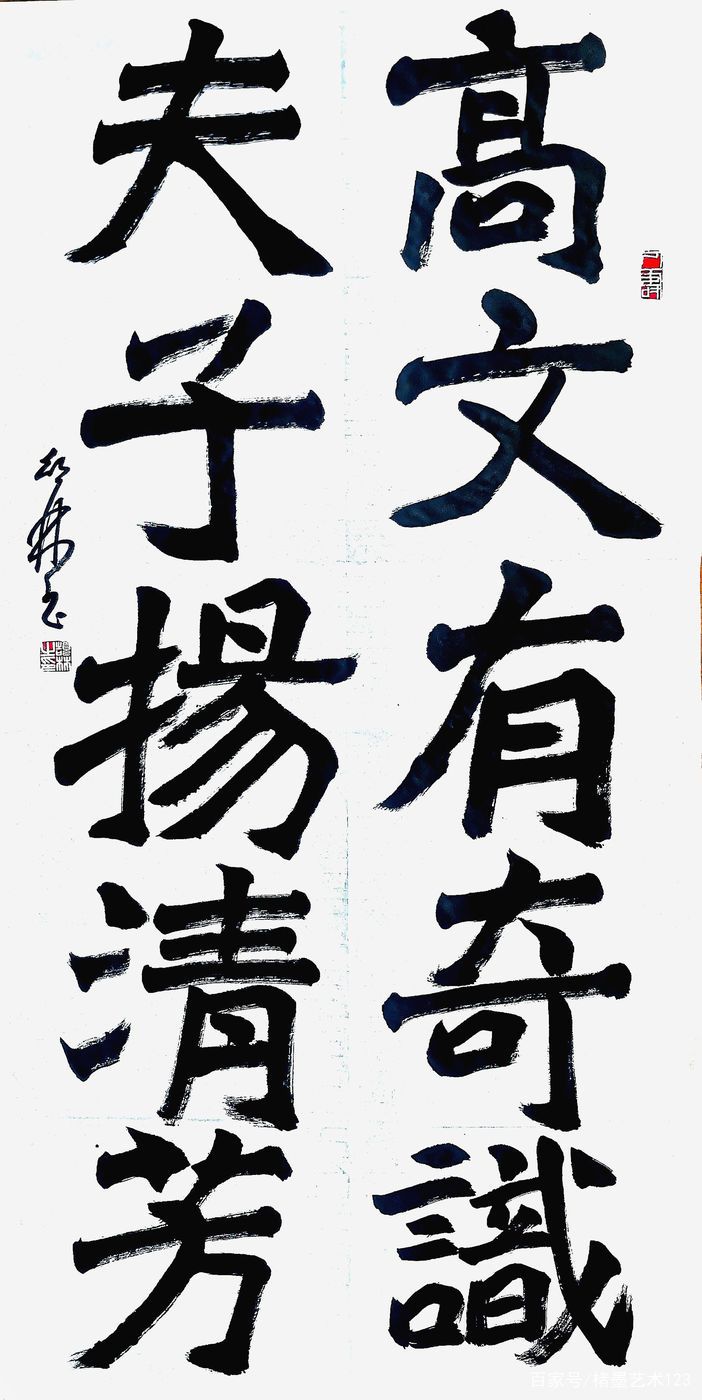 高文有奇識
夫子揚清芳
百家号/楮墨艺术123